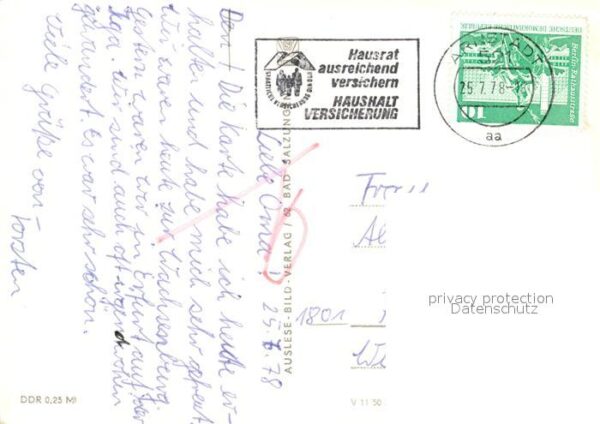 Liebe Oma! 25.7.78
Den! Die Karte habe ich heute er-
halten und habe mich sehr gefreut.
Wir waren heute zur Wachsenburg.
Gestern waren wir in Erfurt auf der
Iga. Wir sind auch oft irgendwohin
gewandert. Es war sehr schön.
Viele Grüße von
Torsten
Hausrat
ausreichend
versichern
HAUSHALT
VERSICHERUNG
ARNSTADT
25.7.78
aa
DEUTSCHE DEMOKRATISCHE REPUBLIK
10
AUSLESE-BILD-VERLAG / 62 BAD SALZUNGEN
1801
privacy protection
Datenschutz
DDR 0,25 M
V 11 50